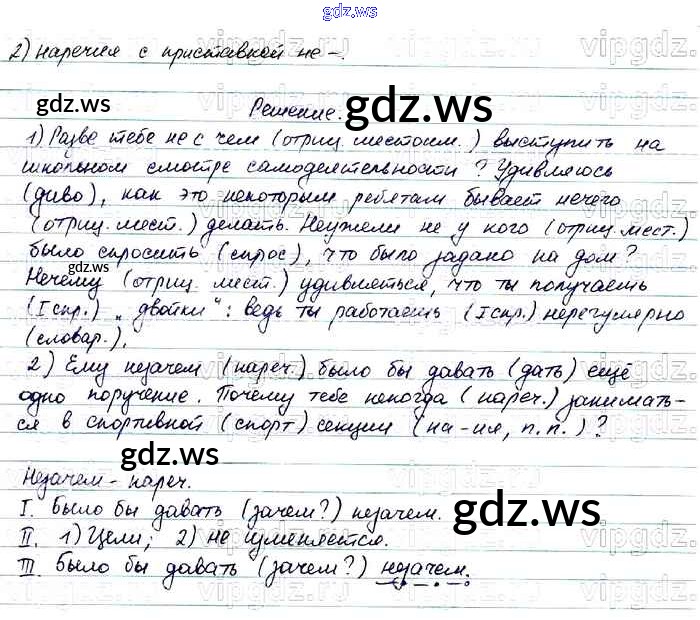 gdz.ws
2) наречия с приставкой не-.
Решение.
1) Разве тебе не с чем (отриц. местоим.) выступить на
школьном смотре самодеятельности? Удивляюсь
(диво), как это некоторым ребятам бывает нечего
(отриц. мест.) делать. Неужели не у кого (отриц. мест.)
было спросить (спрос), что было задано на дом?
Нечему (отриц. мест.) удивляться, что ты получаешь
(I спр.) „двойки": ведь ты работаешь (I спр.) нерегулярно
(словар.).
2) Ему незачем (нареч.) было бы давать (дать) ещё
одно поручение. Почему тебе некогда (нареч.) занимать-
ся в спортивной (спорт) секции (на -ия, п.п.)?
Незачем - нареч.
I. Было бы давать (зачем?) незачем.
II. 1) Цели; 2) не изменяется.
III. Было бы давать (зачем?) незачем.